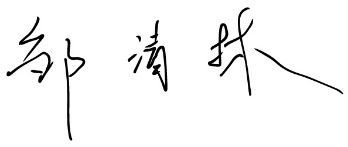 邹清林